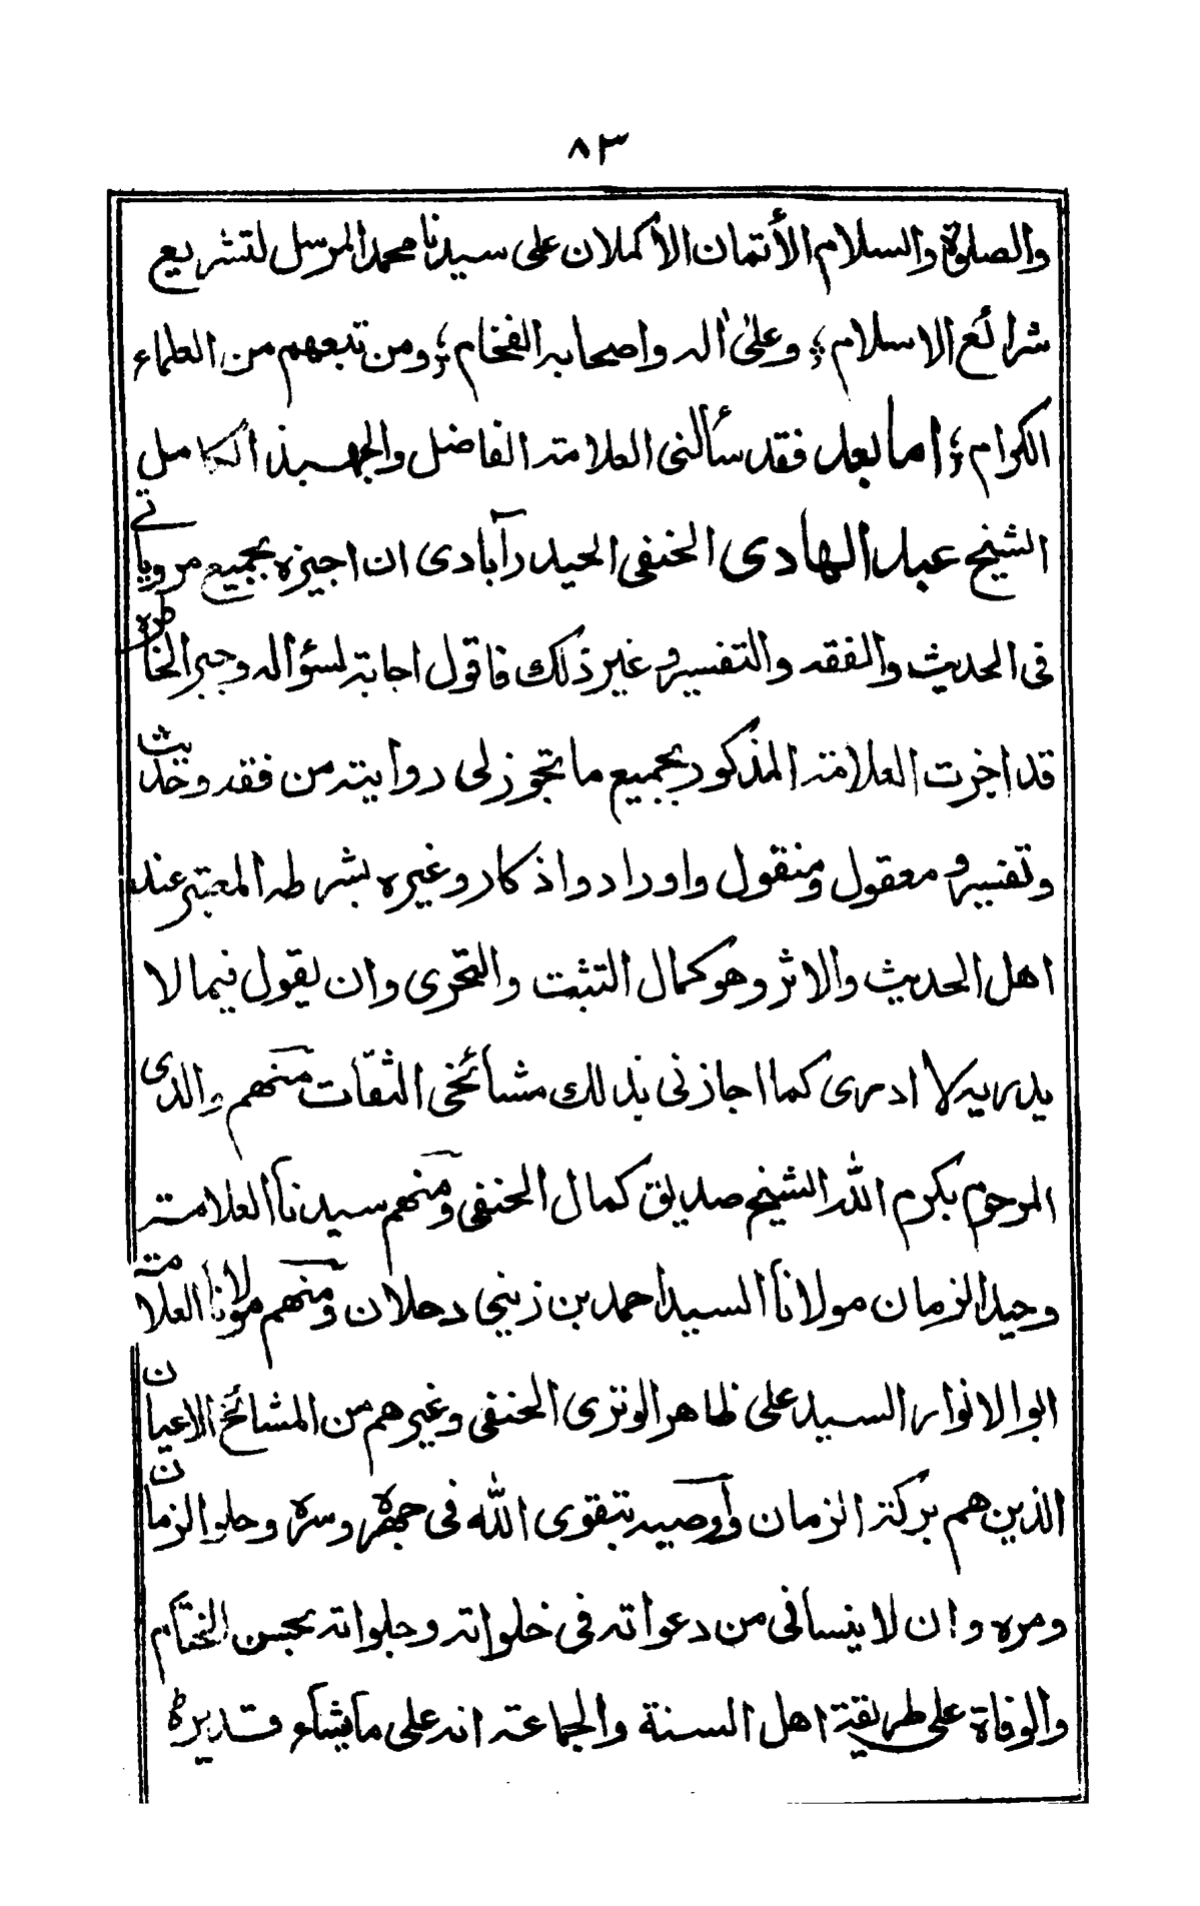 ٨٣
والصلوة والسلام الأتمان الأكملان على سيدنا محمد المرسل لتشريع
شرائع الاسلام ؛ وعلىٰ اٰله واصحابه الفخام ؛ ومن تبعهم من العلماء
الكرام ؛ اما بعد فقد سألنى العلامة الفاضل والجهبذ الكامل
الشيخ عبد الهادى الحنفى الحيدرآبادى ان اجيزه بجميع مروياتے
فى الحديث والفقه والتفسير وغير ذلك فاقول اجابة لسؤاله وجبر الخاطره
قد اجزت العلامة المذكور بجميع ما تجوز لى روايته من فقه وحديث
وتفسير و معقول ومنقول واوراد واذكار وغيره بشرطه المعتبر عند
اهل الحديث والاثر وهو كمال التثبت والتحرى وان يقول فيما لا
يدريه لا ادرى كما اجازنى بذلك مشائخى الثقات منهم والدى
المرحوم بكرم الله الشيخ صديق كمال الحنفى ومنهم سيدنا العلامة
وحيد الزمان مولانا السيد احمد بن زينى دحلان ومنهم مولانا العلامة
ابو الانوار السيد على ظاهر الوترى الحنفى وغيرهم من المشائخ الاعيان
الذين هم بركة الزمان وأوصيه بتقوى الله فى جهره وسره وحلو الزمان
ومره وان لا ينسانى من دعواته فى خلواته وجلواته بحسن الختام
والوفاة على طريقة اهل السنة والجماعة انه على ما يشاء قدير ط